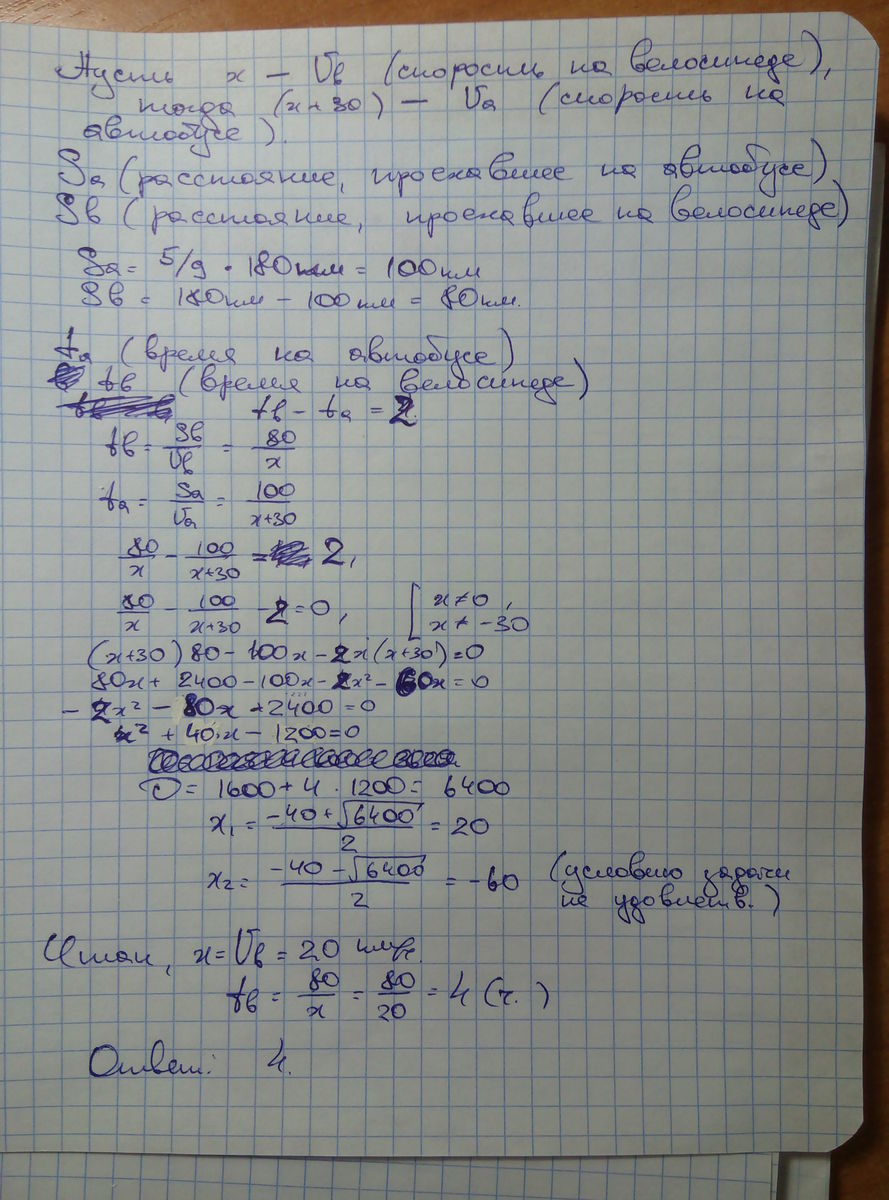 Пусть x — Vв (скорость на велосипеде),
тогда (x+30) — Va (скорость на
автобусе).
Sa (расстояние, проехавшее на автобусе)
Sв (расстояние, проехавшее на велосипеде)
Sa = 5/9 · 180км = 100км
Sв = 180км - 100км = 80км.
ta (время на автобусе)
tв (время на велосипеде)
tв - ta = 2.
tв = Sв/Vв = 80/x
ta = Sa/Va = 100/(x+30)
80/x - 100/(x+30) = 2,
80/x - 100/(x+30) - 2 = 0, [ x ≠ 0, x ≠ -30
(x+30)80 - 100x - 2x(x+30) = 0
80x + 2400 - 100x - 2x² - 60x = 0
-2x² - 80x + 2400 = 0
x² + 40x - 1200 = 0
D = 1600 + 4 · 1200 = 6400
x₁ = (-40 + √6400)/2 = 20
x₂ = (-40 - √6400)/2 = -60 (условию задачи
не удовлетв.)
Итак, x = Vв = 20 км/ч.
tв = 80/x = 80/20 = 4 (ч.)
Ответ: 4.